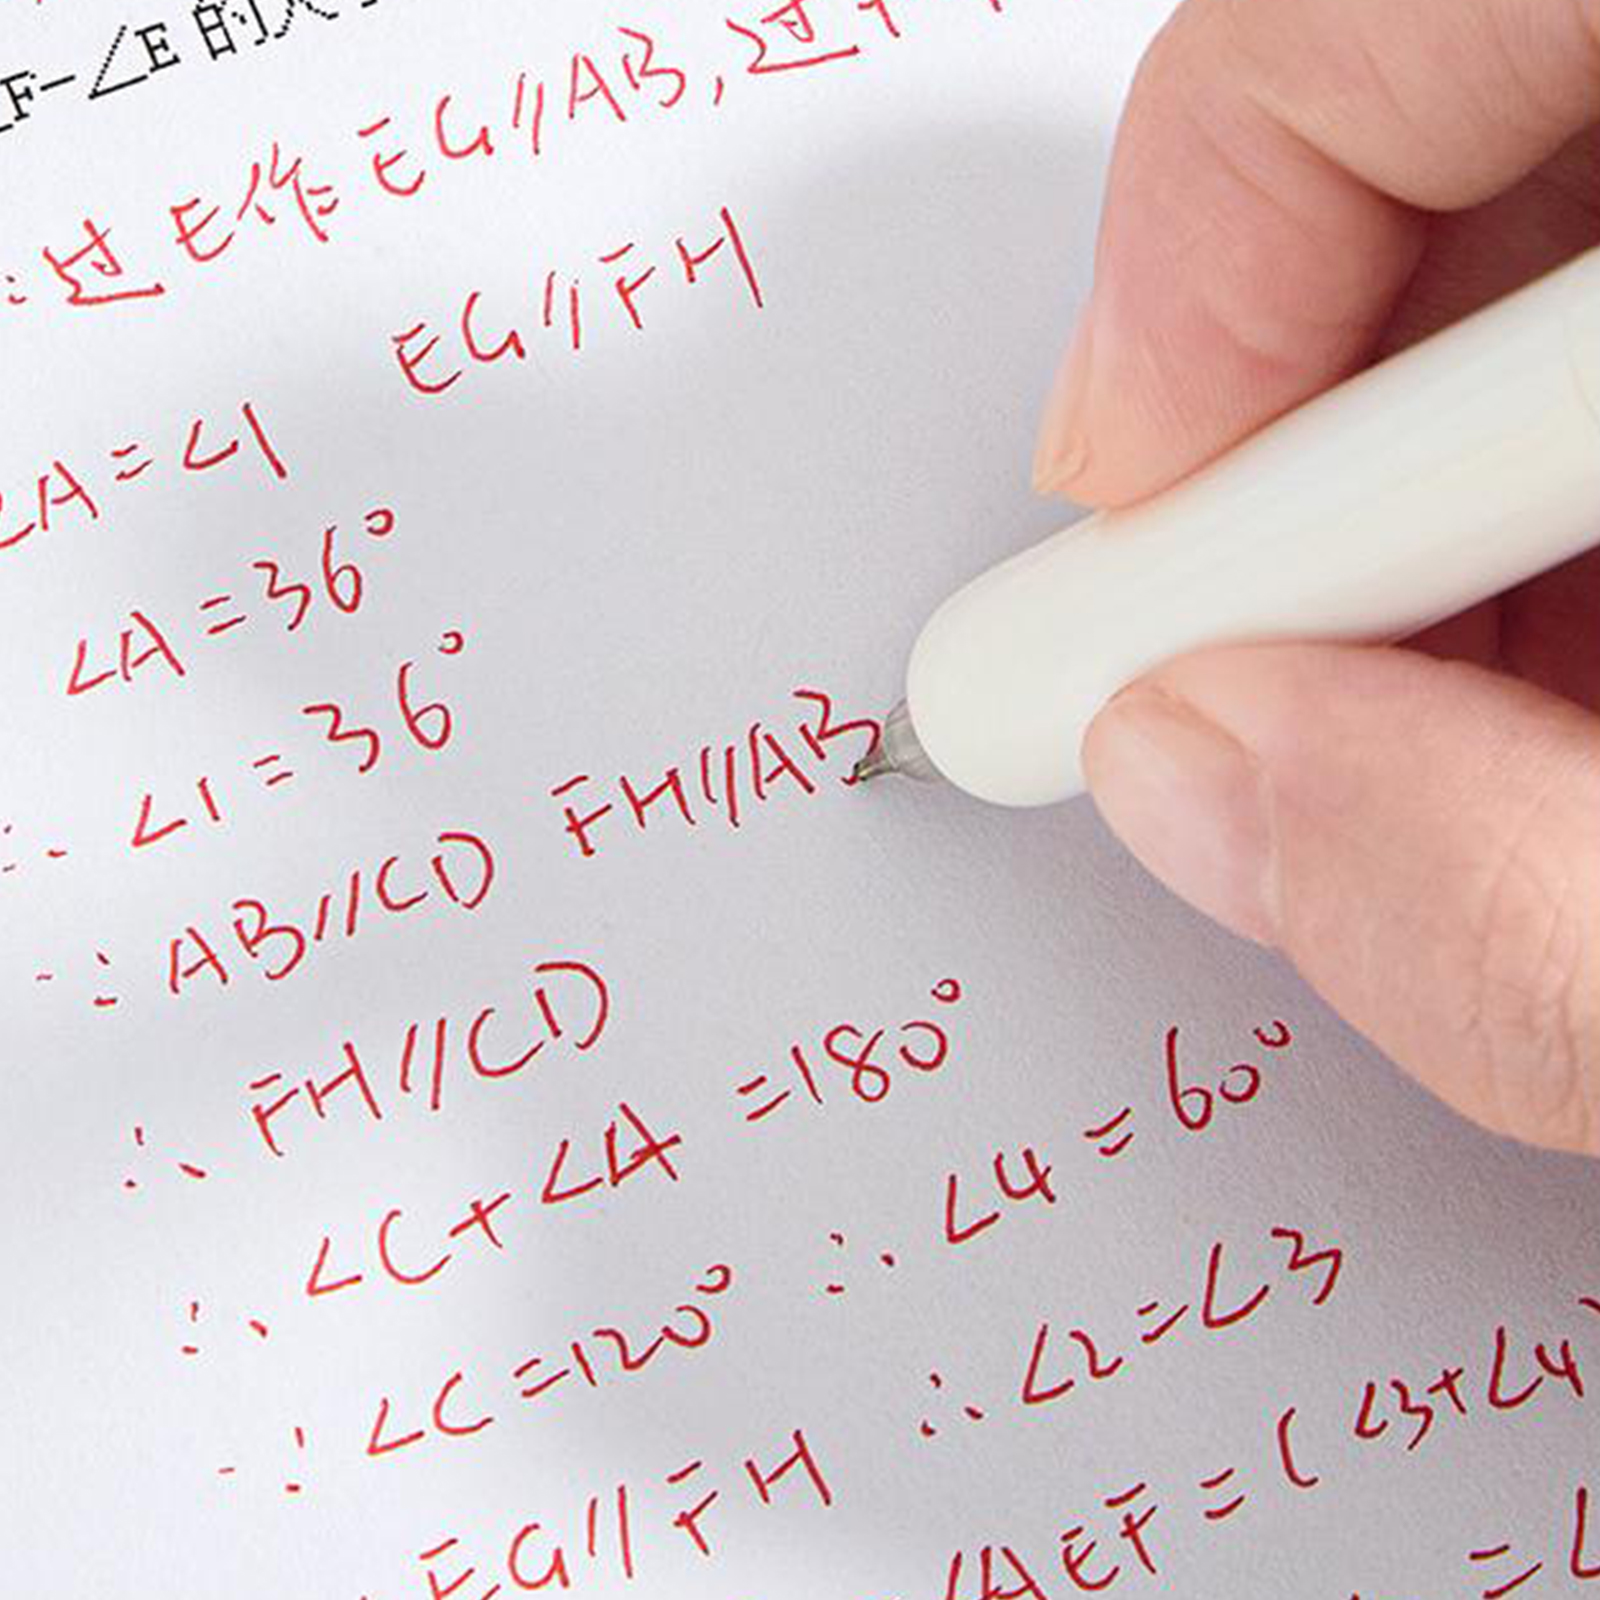 F-∠E 的
过E作EG//AB,过
EG//FH
∠A=∠1
∠A=36°
∴ ∠1=36°
∵ AB//CD FH//AB
∴ FH//CD
∴ ∠C+∠4=180°
∵ ∠C=120° ∴ ∠4=60°
EG//FH ∴ ∠2=∠3
∠AEF=(∠3+∠4)
=∠